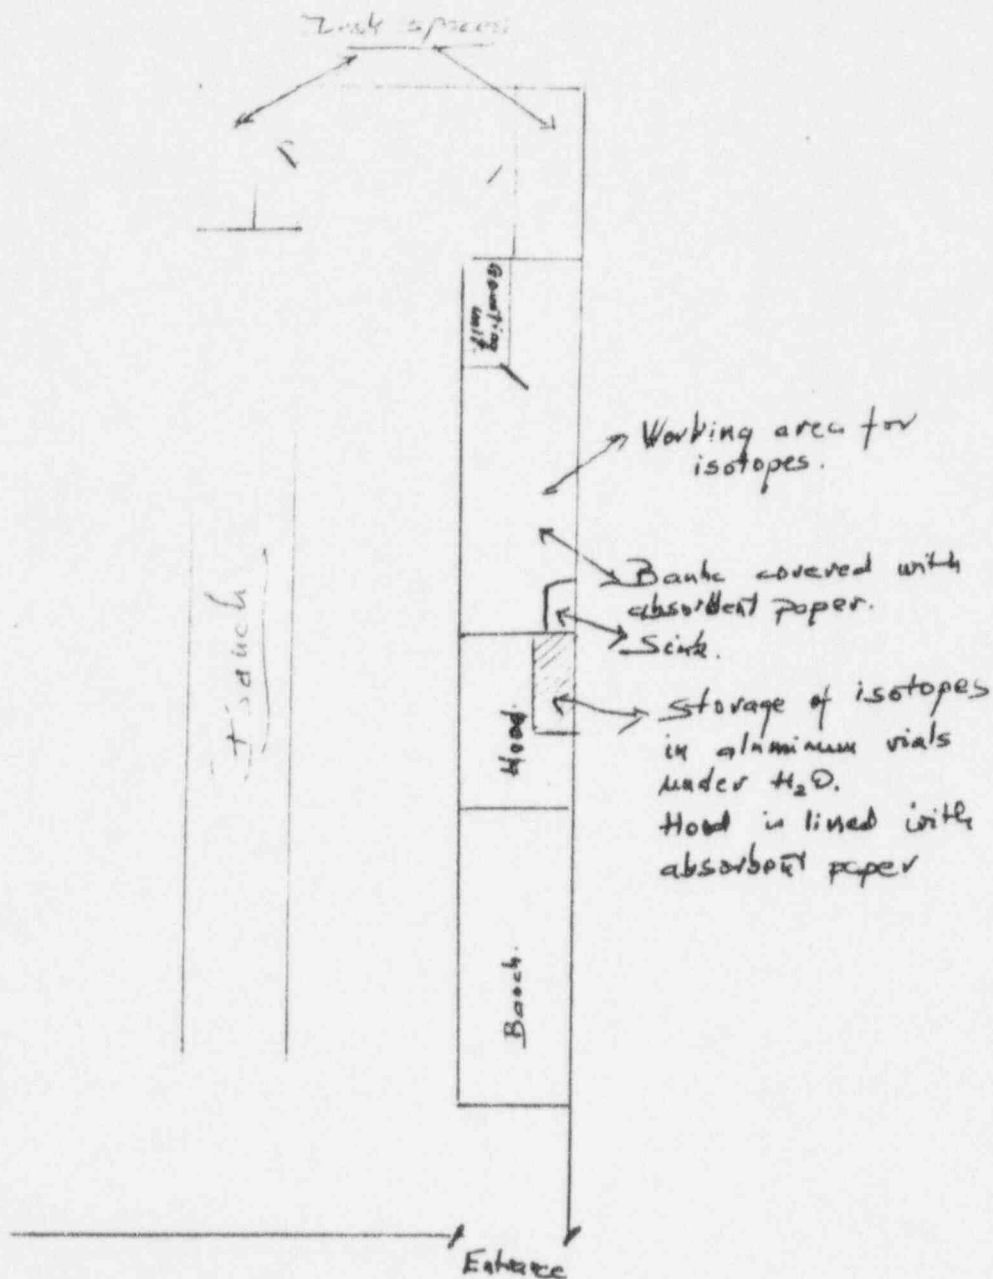 Desk spaces
Counting
unit.
Working area for
isotopes.
Bench covered with
absorbent paper.
Sink.
Storage of isotopes
in aluminum vials
under H₂O.
Hood is lined with
absorbent paper
Hood
Bench
Bench.
Entrance